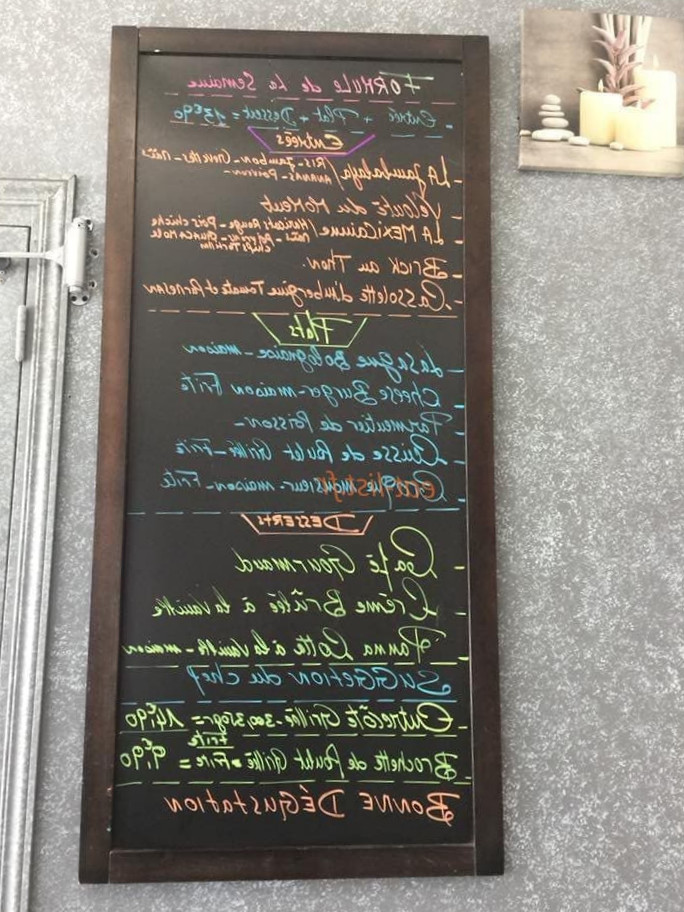 FORMULE de la Semaine
- Entrée + Plat + Dessert = 13€90
Entrées
- LA Jambalaya / Ris - Jambon - Crevettes - Maïs
Ananas - Poivron -
- Velouté du Moment
- LA MEXICAINE / Haricots Rouge - Pois chiche
Maïs - Poivrons - Guacamole
Chips Tortilla
- BRICK au Thon.
- Cassolette d'Aubergine Tomate et Parmesan
Plats
- Lasagne Bolognaise - maison
- Cheese Burger - maison Frite
- Parmentier de Poisson -
- Cuisse de Poulet Grillée - Frite
- Croque Monsieur - maison - Frite
restolist.fr
DESSERTS
- Café Gourmand
- Crème Brûlée à la Vanille
- Panna Cotta à la Vanille - maison
SUGGETION du chef
- Entrecôte Grillée - 300,350gr = 14€90
Frite
- Brochette de Poulet Grillé - Frite = 9€90
BONNE DÉGUSTATION